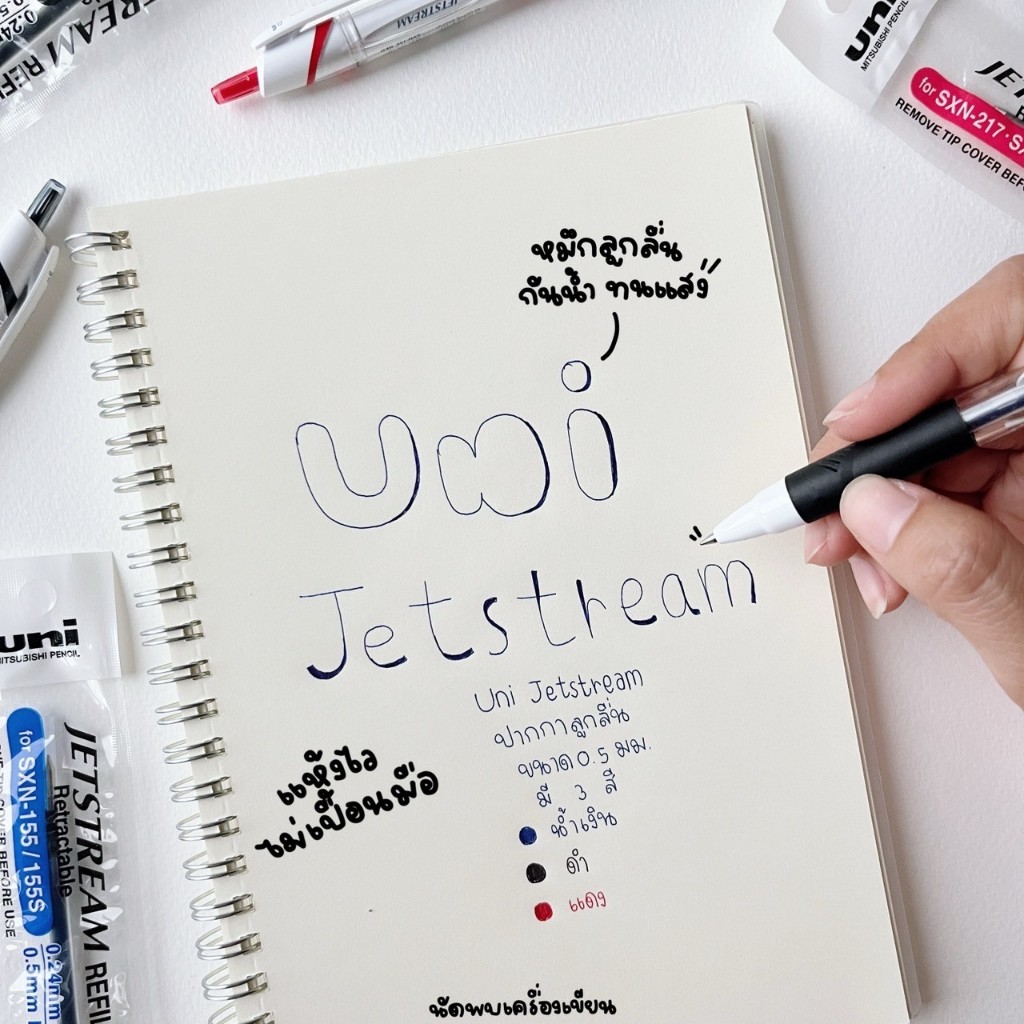 JETSTREAM
0.24
0.5
JETSTREAM REFI
uni
MITSUBISHI PENCIL
for SXN-217・S
REMOVE TIP COVER BEF
หมึกลูกลื่น
กันน้ำ ทนแสง
Uni
Jetstream
Uni Jetstream
ปากกาลูกลื่น
ขนาด 0.5 มม.
มี 3 สี
น้ำเงิน
ดำ
แดง
แห้งไว
ไม่เปื้อนมือ
uni
MITSUBISHI PENCIL
for SXN-155/155S
JETSTREAM REFIL
Retractable
COVER BEFORE USE
0.24mm
0.5mm
นัดพบเครื่องเขียน